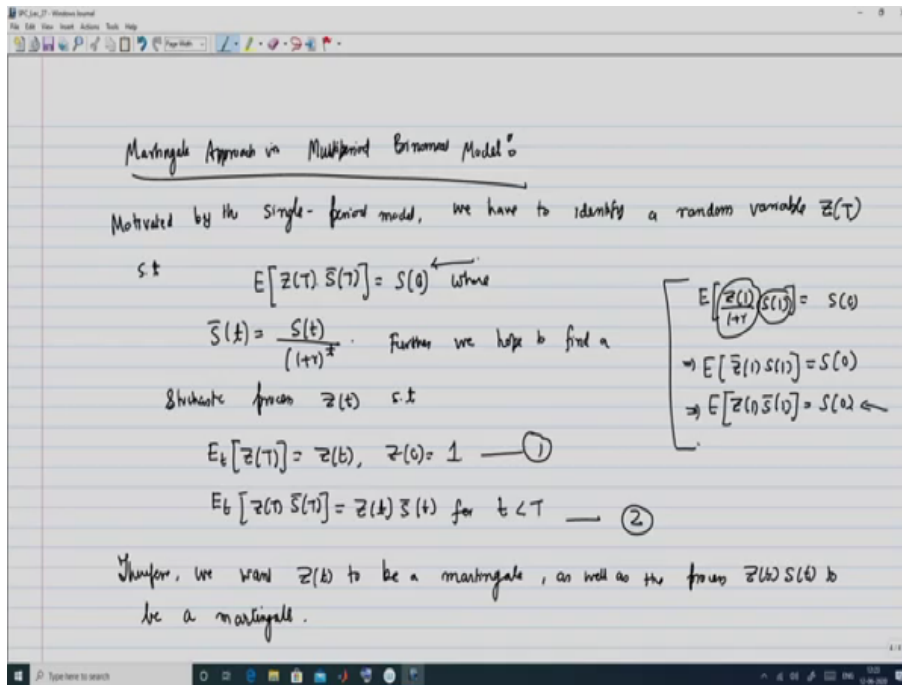 SPC_Lec_27 - Windows Journal
File Edit View Insert Actions Tools Help
Page Width
Martingale Approach in Multiperiod Binomial Model:
Motivated by the single-period model, we have to identify a random variable Z(T)
s.t
E[Z(T) S̄(T)] = S(0) ← where
S̄(t) = S(t)/(1+r)^t . Further we hope to find a
Stochastic process Z(t) s.t
E_t[Z(T)] = Z(t), Z(0) = 1 — ①
E_t[Z(T) S̄(T)] = Z(t) S̄(t) for t < T — ②
Therefore, we want Z(t) to be a martingale, as well as the process Z(t) S(t) to
be a martingale.
E[Z(1)/(1+r) S(1)] = S(0)
⇒ E[Z̄(1) S(1)] = S(0)
⇒ E[Z(1) S̄(1)] = S(0) ←
Type here to search
ENG
12-06-2020